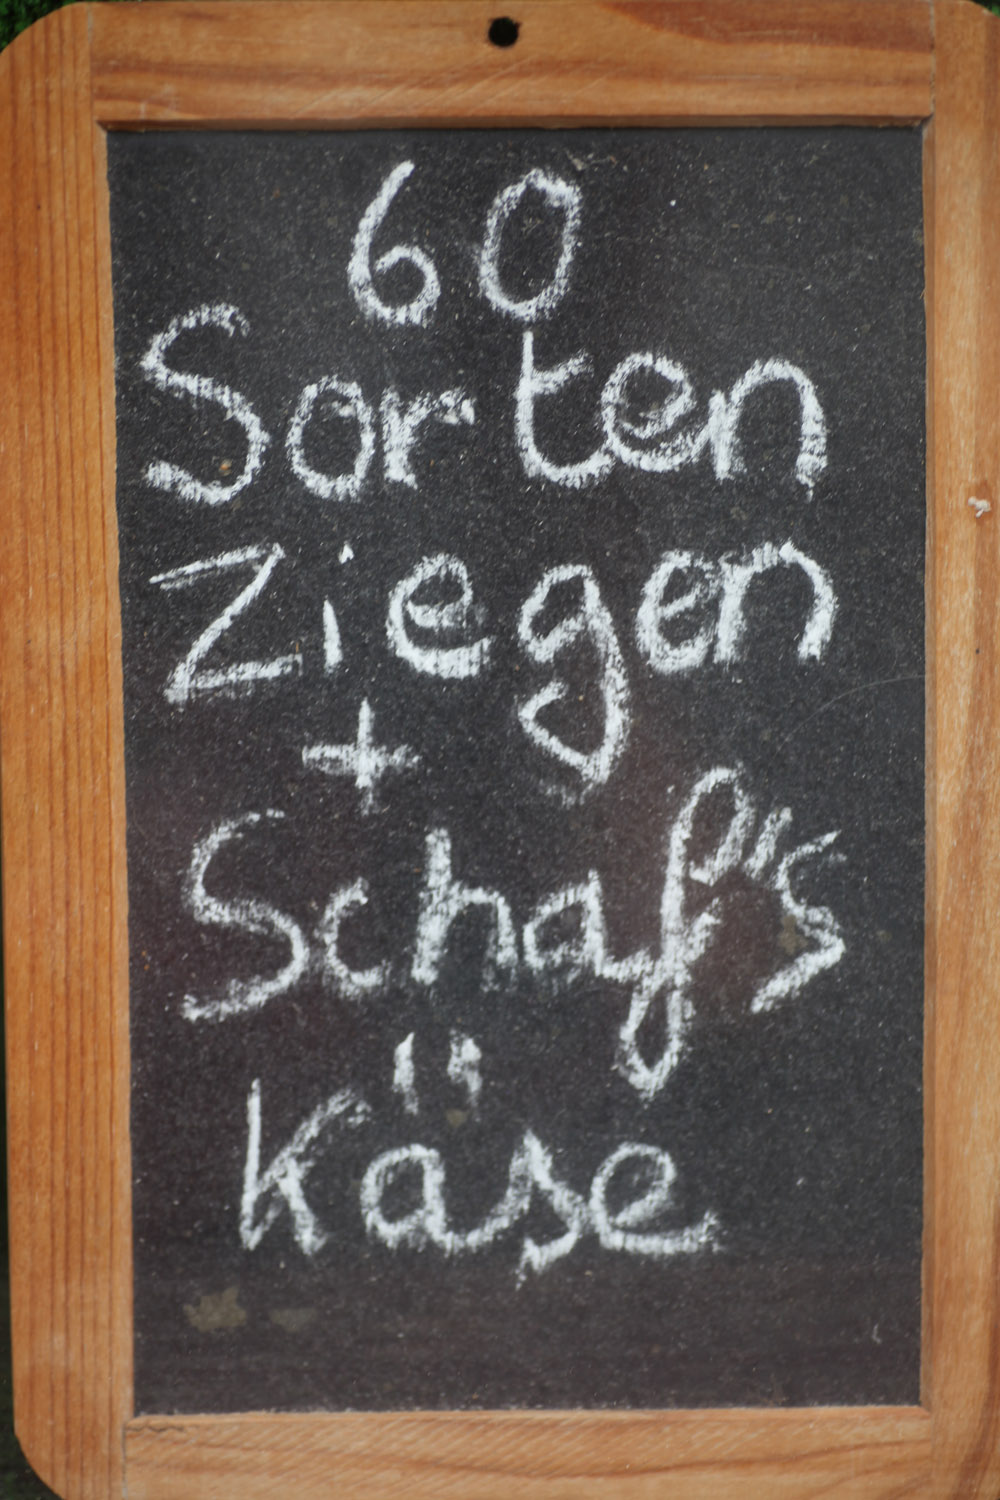 60
Sorten
Ziegen
+
Schaf's
Käse